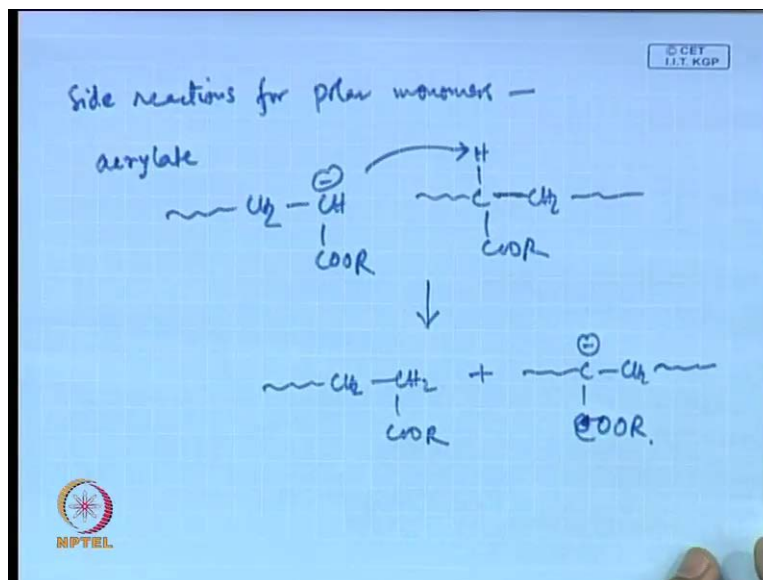 © CET
I.I.T. KGP
Side reactions for polar monomers —
acrylate
⊖ H
CH2 — CH C — CH2
COOR COOR
⊖
CH2 — CH2 + C — CH2
COOR COOR.
NPTEL